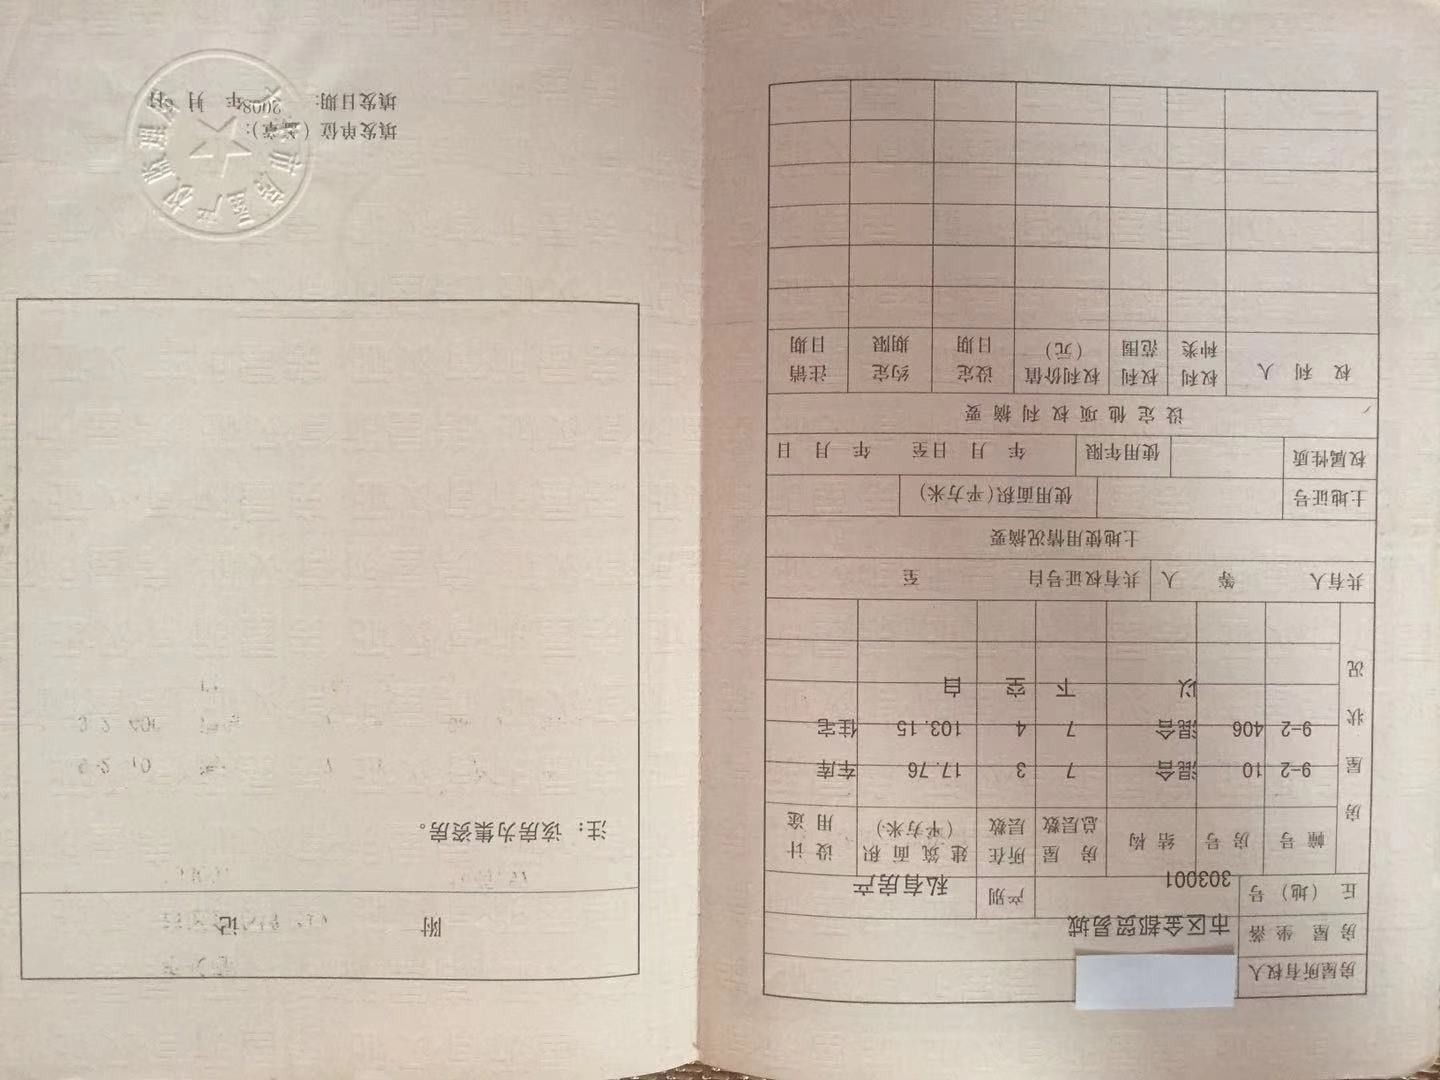 房屋所有权人
房屋坐落 市区金都贸易城
丘（地）号 303001 产别 私有房产
房屋状况
幢号 房号 结构 房屋总层数 所在层数 建筑面积（平方米） 设计用途
9-2 10 混合 7 3 17.76 车库
9-2 406 混合 7 4 103.15 住宅
以 下 空 白
共有人 等 人 共有权证号自 至
土地使用情况摘要
土地证号 使用面积(平方米)
权属性质 使用年限 年 月 日至 年 月 日
设定他项权利摘要
权利人 权利种类 权利范围 权利价值（元） 设定日期 约定期限 注销日期
附 记
注：该房为集资房。
填发单位（盖章）：
填发日期： 2008年